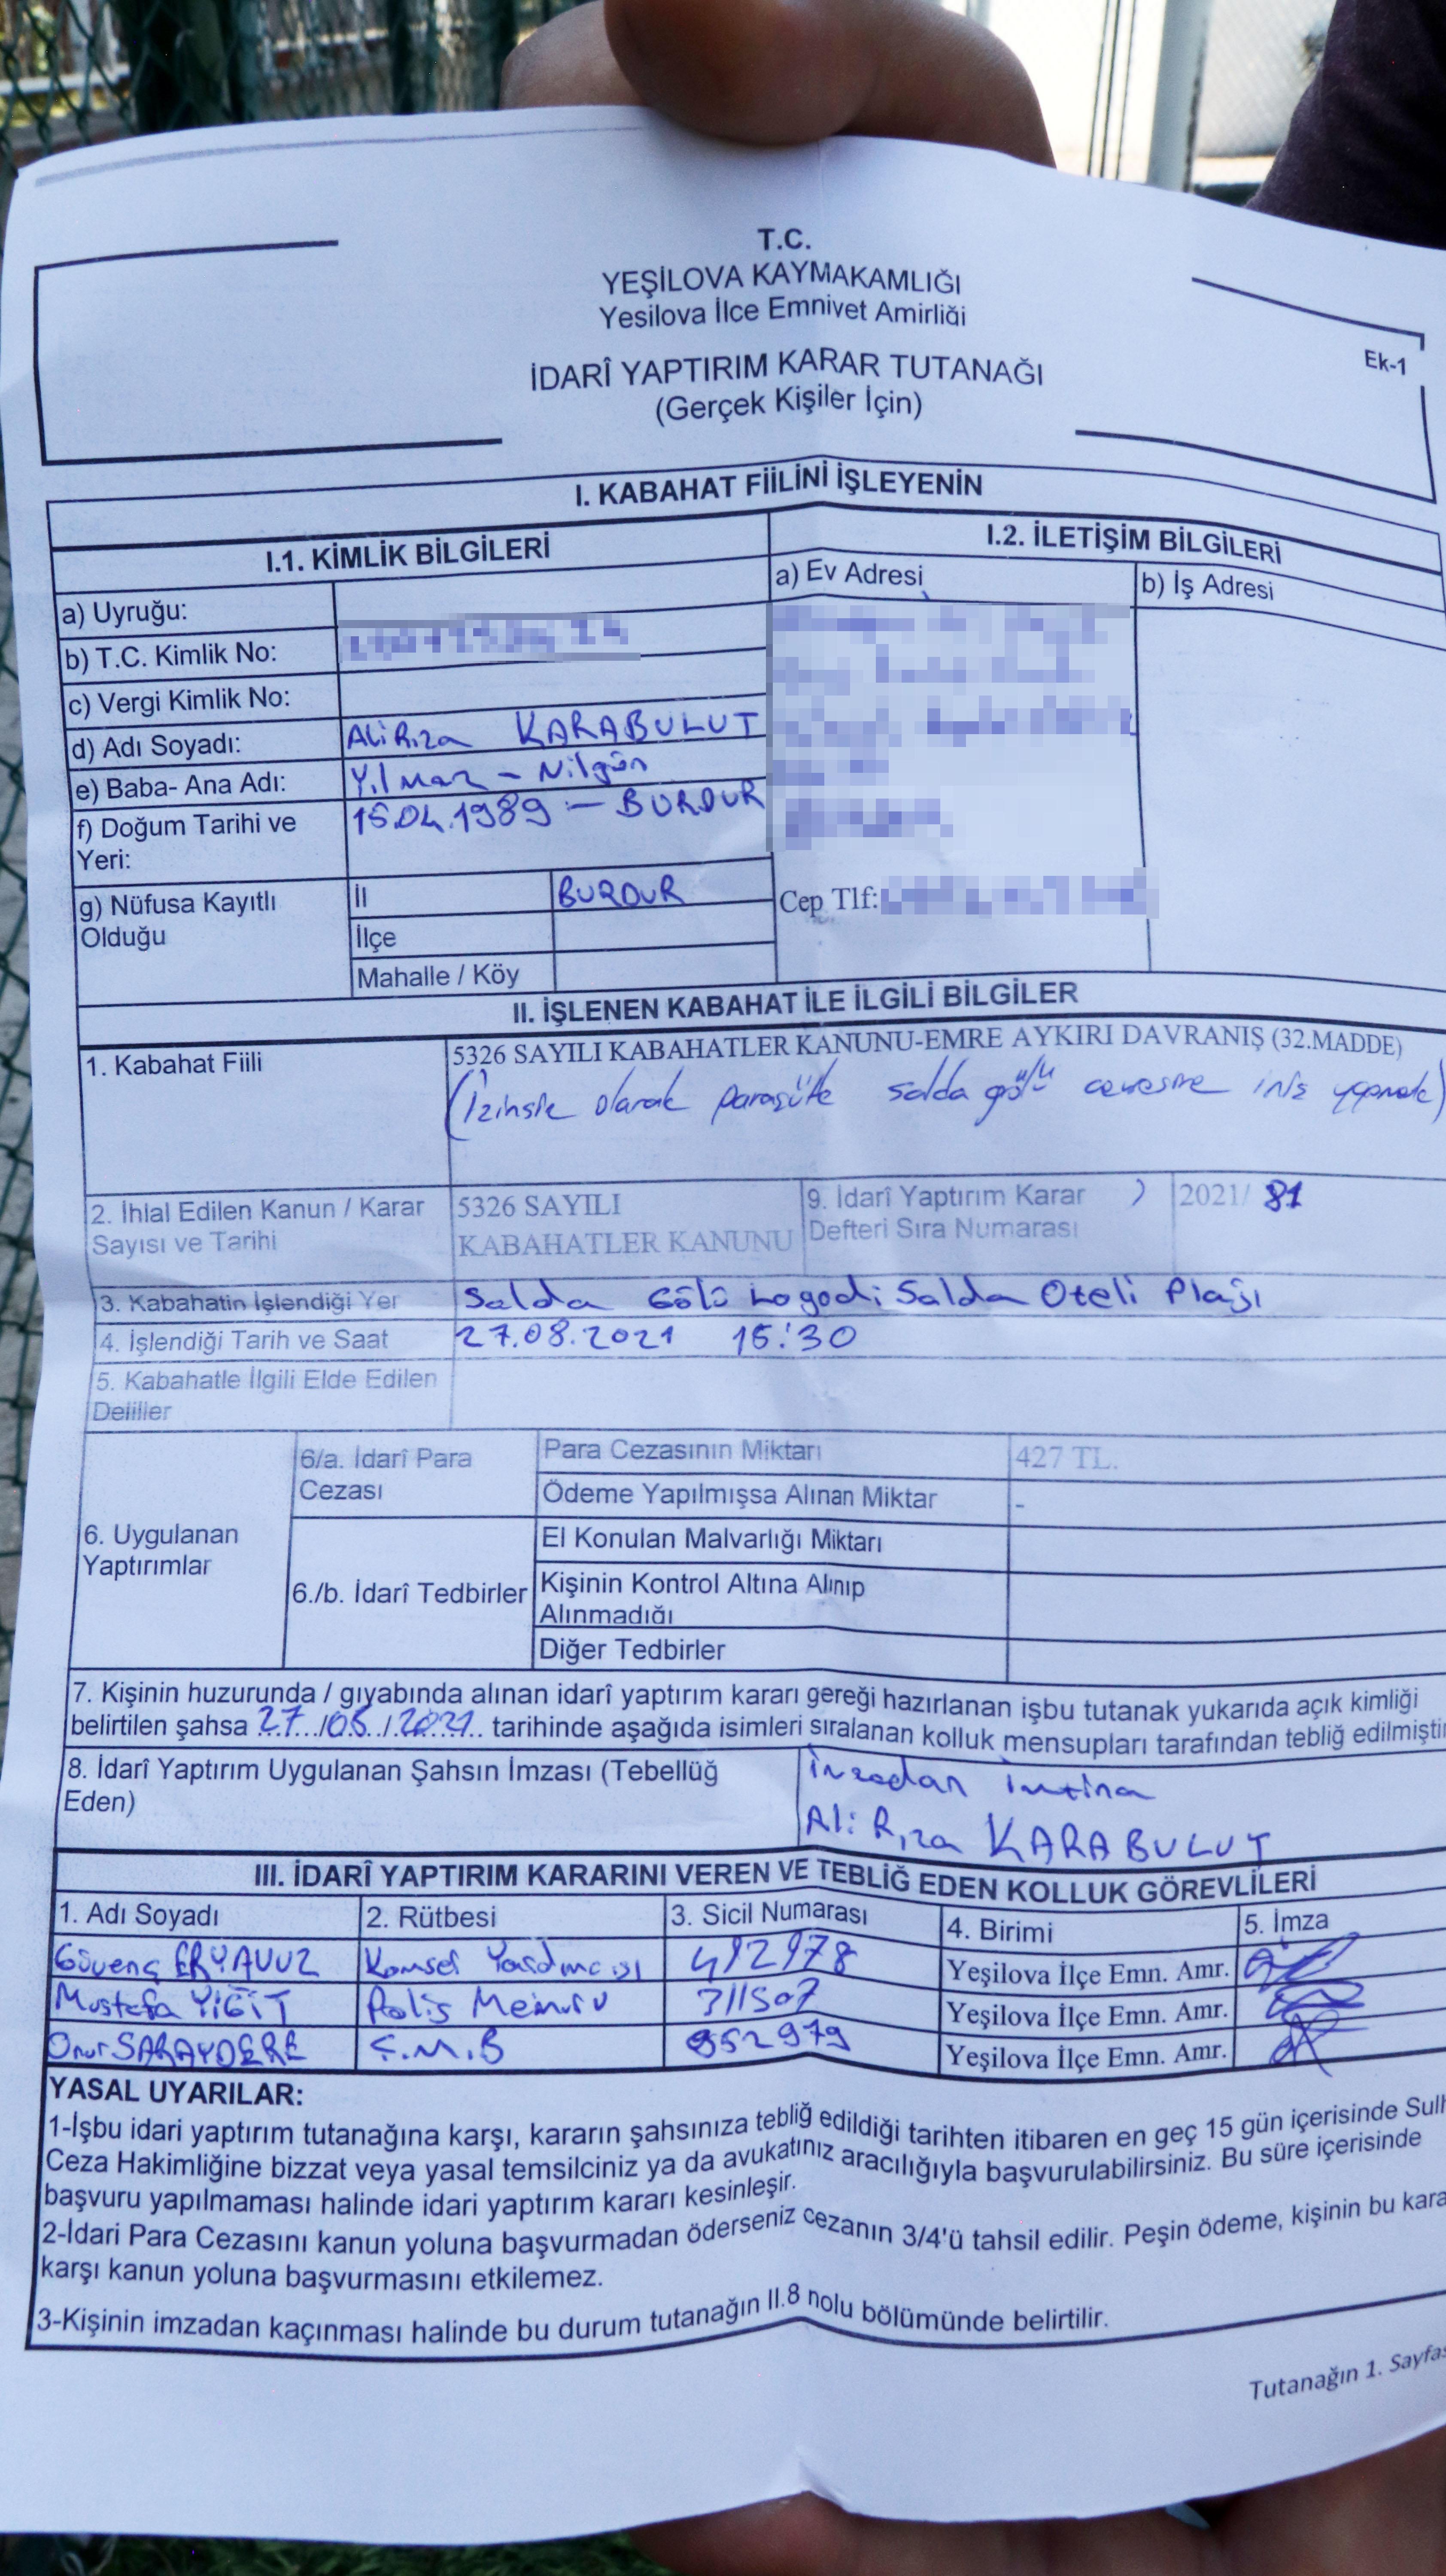 T.C.
YEŞİLOVA KAYMAKAMLIĞI
Yesilova İlce Emnivet Amirliği
İDARÎ YAPTIRIM KARAR TUTANAĞI
(Gerçek Kişiler İçin)
Ek-1
I. KABAHAT FİİLİNİ İŞLEYENİN
I.1. KİMLİK BİLGİLERİ
I.2. İLETİŞİM BİLGİLERİ
a) Uyruğu:
a) Ev Adresi
b) İş Adresi
b) T.C. Kimlik No:
c) Vergi Kimlik No:
d) Adı Soyadı: Ali Rıza KARABULUT
e) Baba- Ana Adı: Yılmaz - Nilgün
f) Doğum Tarihi ve 15.04.1989 - BURDUR
Yeri:
g) Nüfusa Kayıtlı
Olduğu
İl BURDUR
İlçe
Mahalle / Köy
Cep Tlf:
II. İŞLENEN KABAHAT İLE İLGİLİ BİLGİLER
1. Kabahat Fiili
5326 SAYILI KABAHATLER KANUNU-EMRE AYKIRI DAVRANIŞ (32.MADDE)
(İzinsiz olarak paraşütle salda gölü çevresine iniş yapmak)
2. İhlal Edilen Kanun / Karar
Sayısı ve Tarihi
5326 SAYILI
KABAHATLER KANUNU
9. İdarî Yaptırım Karar
Defteri Sıra Numarası
2021/ 81
3. Kabahatin İşlendiği Yer Salda Gölü Lagodi Salda Oteli Plajı
4. İşlendiği Tarih ve Saat 27.08.2021 15:30
5. Kabahatle İlgili Elde Edilen
Deliller
6. Uygulanan
Yaptırımlar
6/a. İdarî Para
Cezası
Para Cezasının Miktarı 427 TL.
Ödeme Yapılmışsa Alınan Miktar -
6./b. İdarî Tedbirler
El Konulan Malvarlığı Miktarı
Kişinin Kontrol Altına Alınıp
Alınmadığı
Diğer Tedbirler
7. Kişinin huzurunda / gıyabında alınan idarî yaptırım kararı gereği hazırlanan işbu tutanak yukarıda açık kimliği
belirtilen şahsa 27/08/2021 tarihinde aşağıda isimleri sıralanan kolluk mensupları tarafından tebliğ edilmiştir
8. İdarî Yaptırım Uygulanan Şahsın İmzası (Tebellüğ
Eden)
İmzadan imtina
Ali Rıza KARABULUT
III. İDARÎ YAPTIRIM KARARINI VEREN VE TEBLİĞ EDEN KOLLUK GÖREVLİLERİ
1. Adı Soyadı 2. Rütbesi 3. Sicil Numarası 4. Birimi 5. İmza
Güvenç ERYAVUZ Komser Yardımcısı 412978 Yeşilova İlçe Emn. Amr.
Mustafa YİĞİT Polis Memuru 311507 Yeşilova İlçe Emn. Amr.
Onur SARAYDERE Ç.M.B 952979 Yeşilova İlçe Emn. Amr.
YASAL UYARILAR:
1-İşbu idari yaptırım tutanağına karşı, kararın şahsınıza tebliğ edildiği tarihten itibaren en geç 15 gün içerisinde Sulh
Ceza Hakimliğine bizzat veya yasal temsilciniz ya da avukatınız aracılığıyla başvurulabilirsiniz. Bu süre içerisinde
başvuru yapılmaması halinde idari yaptırım kararı kesinleşir.
2-İdari Para Cezasını kanun yoluna başvurmadan öderseniz cezanın 3/4'ü tahsil edilir. Peşin ödeme, kişinin bu kara
karşı kanun yoluna başvurmasını etkilemez.
3-Kişinin imzadan kaçınması halinde bu durum tutanağın II.8 nolu bölümünde belirtilir.
Tutanağın 1. Sayfas